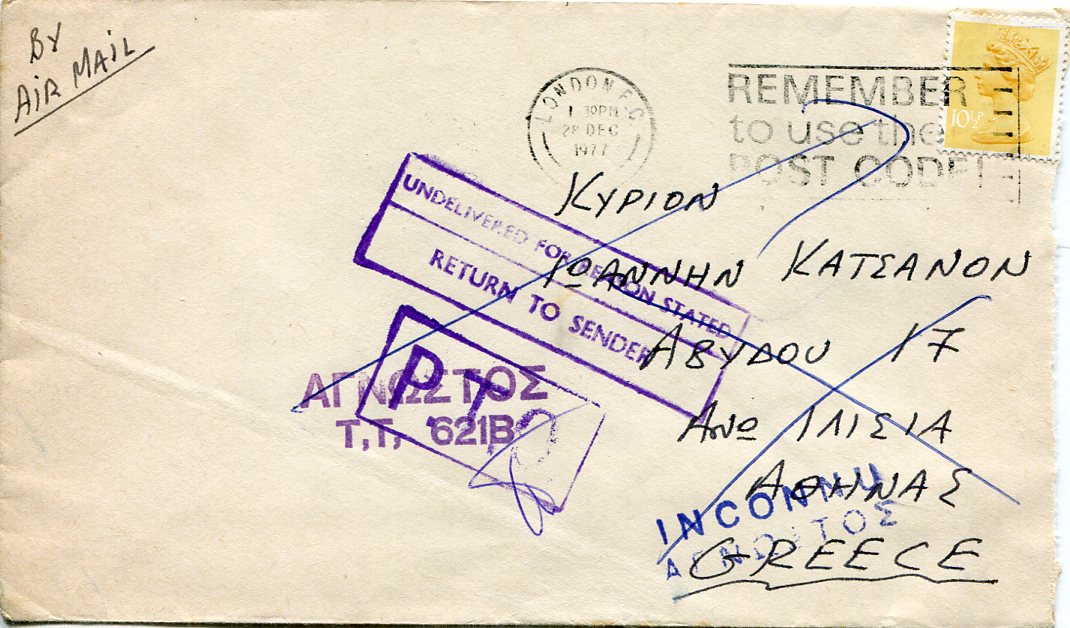 BY
AIR MAIL
LONDON E.C
1 30PM
28 DEC
1977
REMEMBER
to use the
POST CODE!
10½P
ΚΥΡΙΟΝ
ΙΩΑΝΝΗΝ ΚΑΤΣΑΝΟΝ
ΑΒΥΔΟΥ 17
ΑΝΩ ΙΛΙΣΙΑ
ΑΘΗΝΑΣ
GREECE
UNDELIVERED FOR REASON STATED
RETURN TO SENDER
PTO
ΑΓΝΩΣΤΟΣ
Τ,Τ, 621Β
INCONNU
ΑΓΝΩΣΤΟΣ